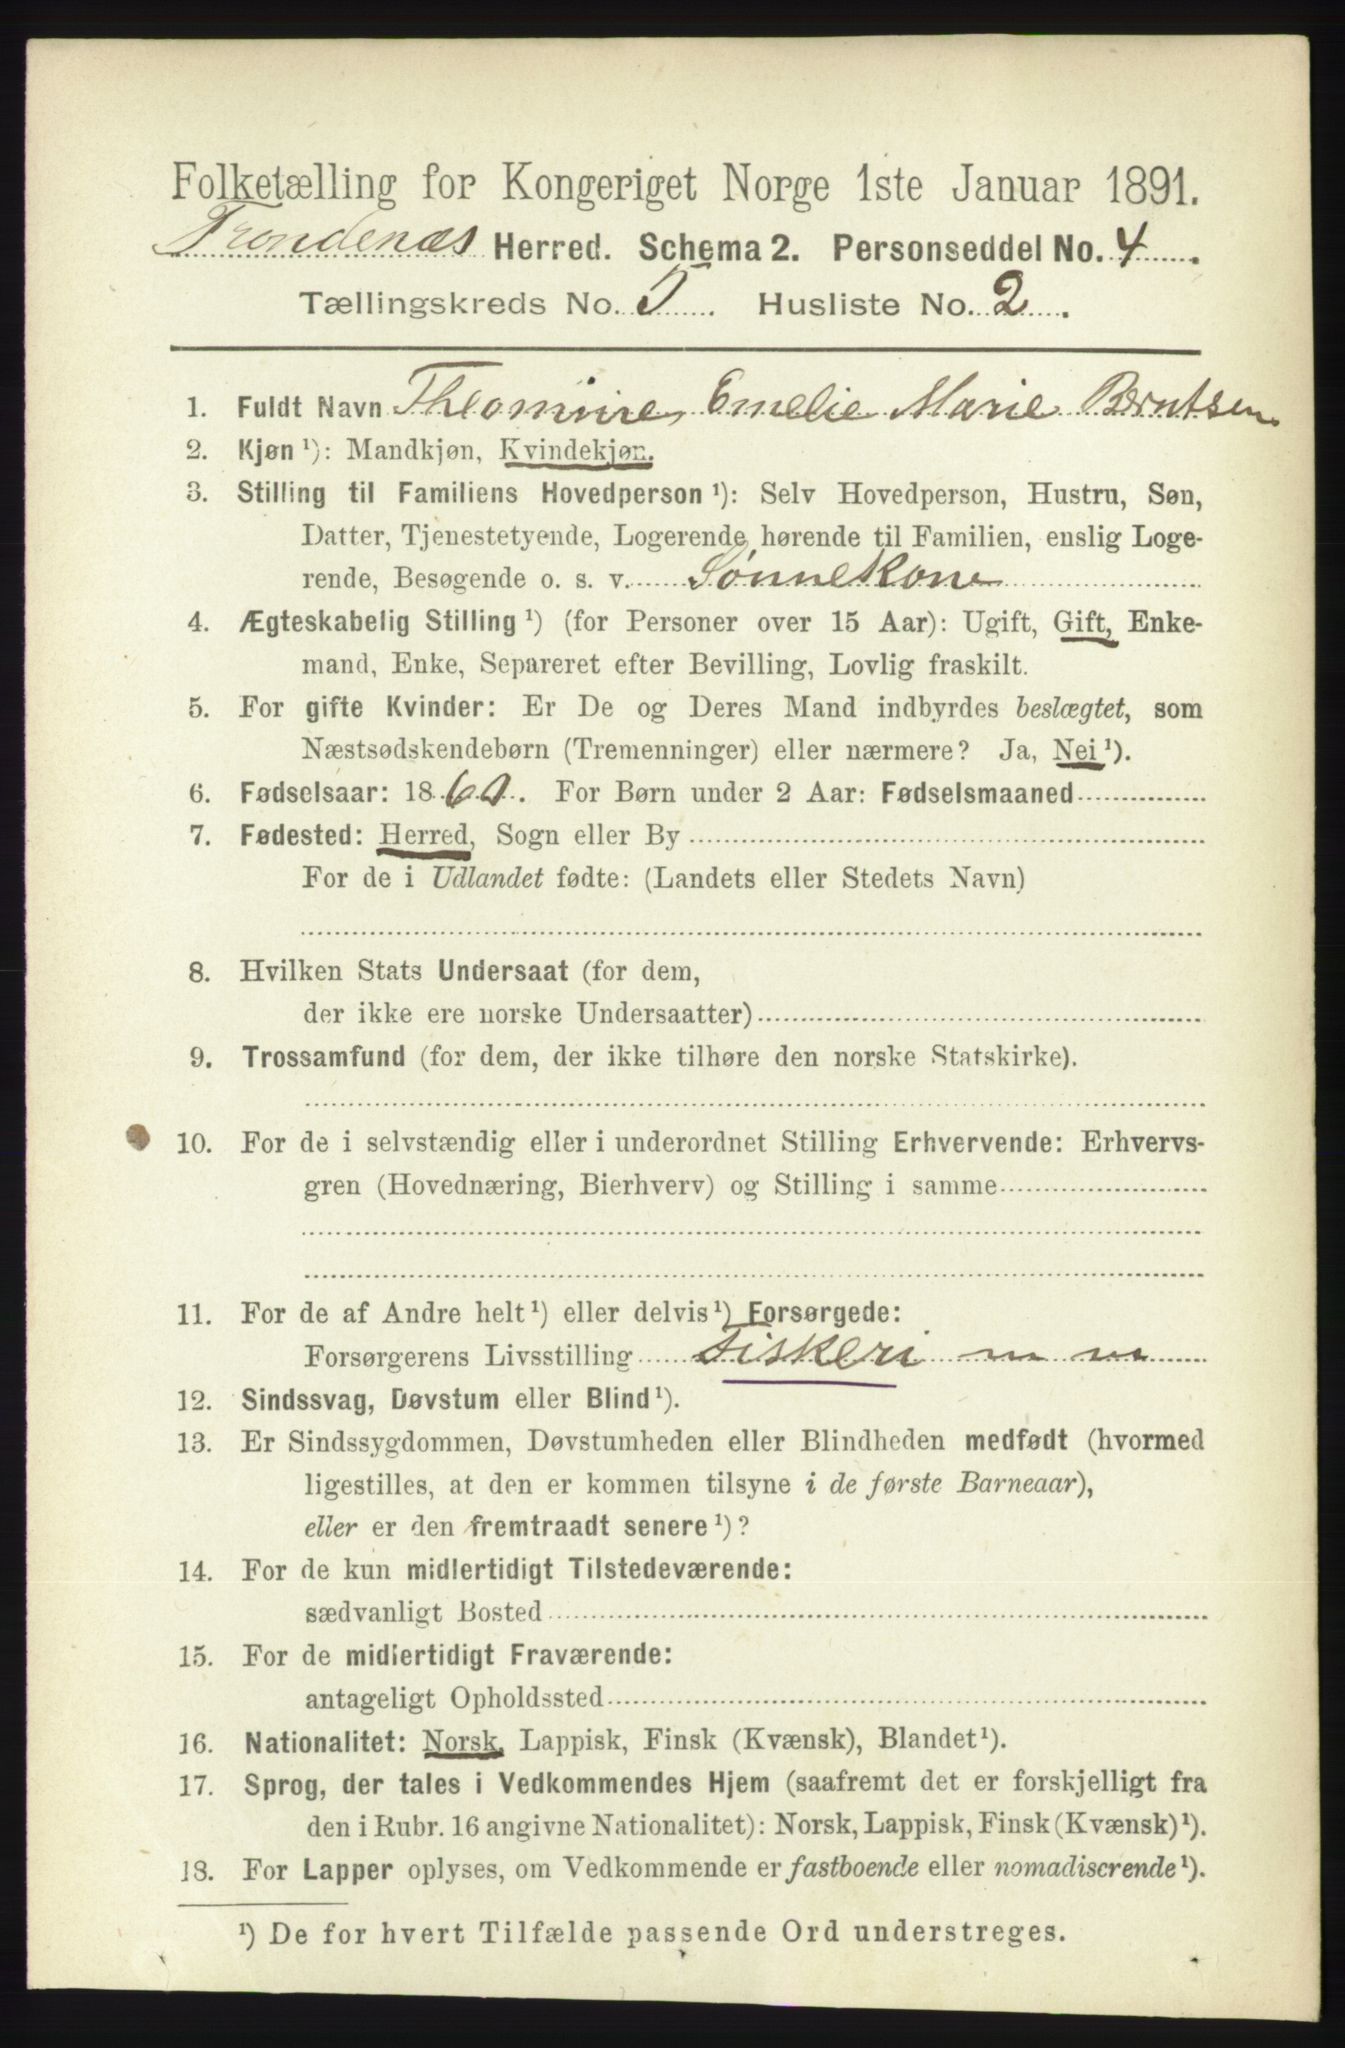 Folketælling for Kongeriget Norge 1ste Januar 1891.
Trondenæs Herred. Schema 2. Personseddel No. 4
Tællingskreds No. 5. Husliste No. 2.
1. Fuldt Navn Emelie Marie Berntsen
2. Kjøn ¹): Mandkjøn, Kvindekjøn.
3. Stilling til Familiens Hovedperson ¹): Selv Hovedperson, Hustru, Søn,
Datter, Tjenestetyende, Logerende hørende til Familien, enslig Loge-
rende, Besøgende o. s. v. Sønnekone
4. Ægteskabelig Stilling ¹) (for Personer over 15 Aar): Ugift, Gift, Enke-
mand, Enke, Separeret efter Bevilling, Lovlig fraskilt.
5. For gifte Kvinder: Er De og Deres Mand indbyrdes beslægtet, som
Næstsødskendebørn (Tremenninger) eller nærmere? Ja, Nei ¹).
6. Fødselsaar: 18. For Børn under 2 Aar: Fødselsmaaned
7. Fødested: Herred, Sogn eller By
For de i Udlandet fødte: (Landets eller Stedets Navn)
8. Hvilken Stats Undersaat (for dem,
der ikke ere norske Undersaatter)
9. Trossamfund (for dem, der ikke tilhøre den norske Statskirke).
10. For de i selvstændig eller i underordnet Stilling Erhvervende: Erhvervs-
gren (Hovednæring, Bierhverv) og Stilling i samme
11. For de af Andre helt ¹) eller delvis ¹) Forsørgede:
Forsørgerens Livsstilling Fiskeri m m
12. Sindssvag, Døvstum eller Blind ¹).
13. Er Sindssygdommen, Døvstumheden eller Blindheden medfødt (hvormed
ligestilles, at den er kommen tilsyne i de første Barneaar),
eller er den fremtraadt senere ¹)?
14. For de kun midlertidigt Tilstedeværende:
sædvanligt Bosted
15. For de midlertidigt Fraværende:
antageligt Opholdssted
16. Nationalitet: Norsk, Lappisk, Finsk (Kvænsk), Blandet ¹).
17. Sprog, der tales i Vedkommendes Hjem (saafremt det er forskjelligt fra
den i Rubr. 16 angivne Nationalitet): Norsk, Lappisk, Finsk (Kvænsk) ¹).
18. For Lapper oplyses, om Vedkommende er fastboende eller nomadiserende ¹).
¹) De for hvert Tilfælde passende Ord understreges.